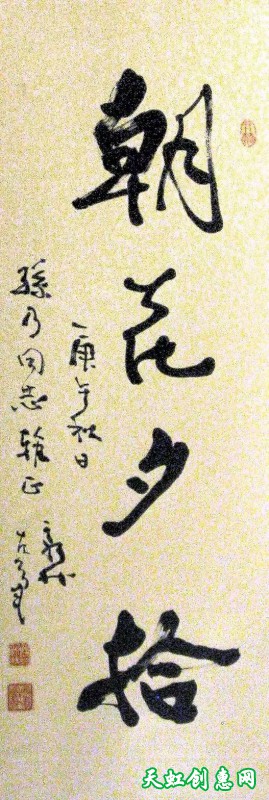 朝花夕拾
庚午秋日
孫乃同志雅正
天虹创惠网